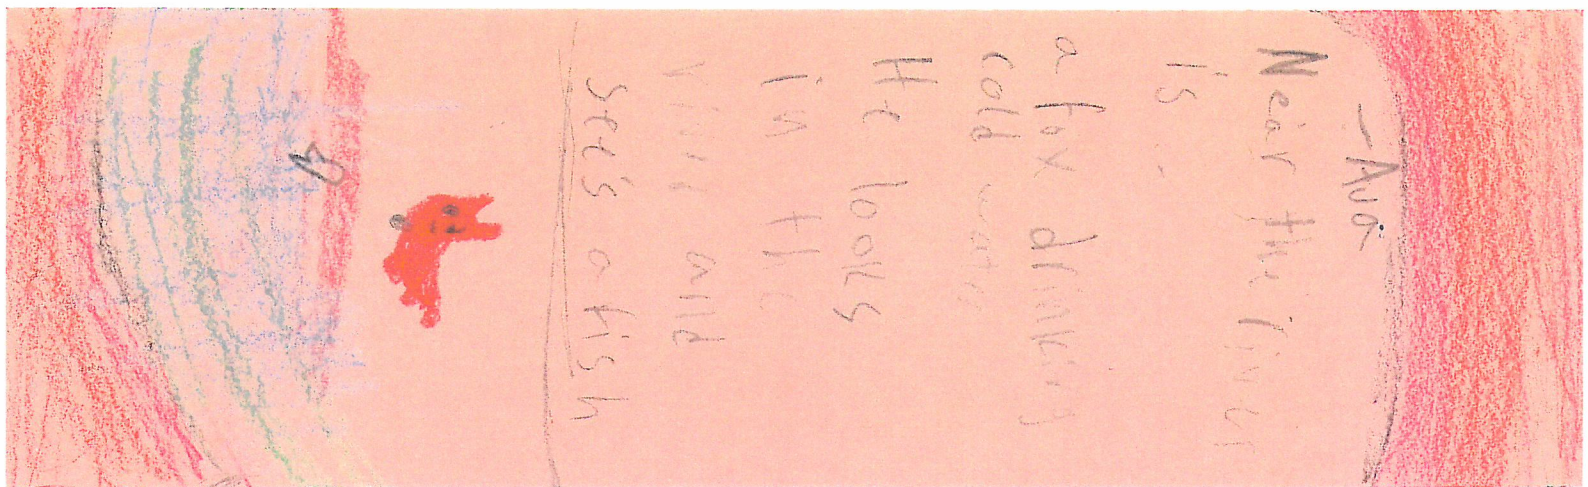 -Ava
Near the river
is
a fox drinking
cold water
He looks
in the
river and
sees a fish